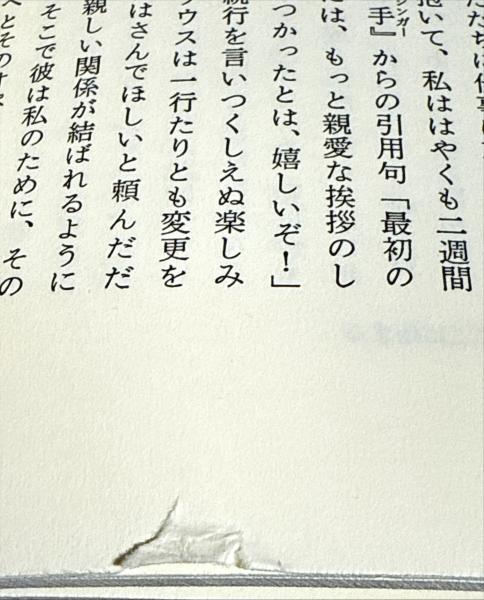 抱いて、私ははやくも二週間
手』からの引用句「最初の
ジンガー
は、もっと親愛な挨拶のし
つかったとは、嬉しいぞ！」
続行を言いつくしえぬ楽しみ
ウスは一行たりとも変更を
はさんでほしいと頼んだだ
親しい関係が結ばれるように
そこで彼は私のために、その